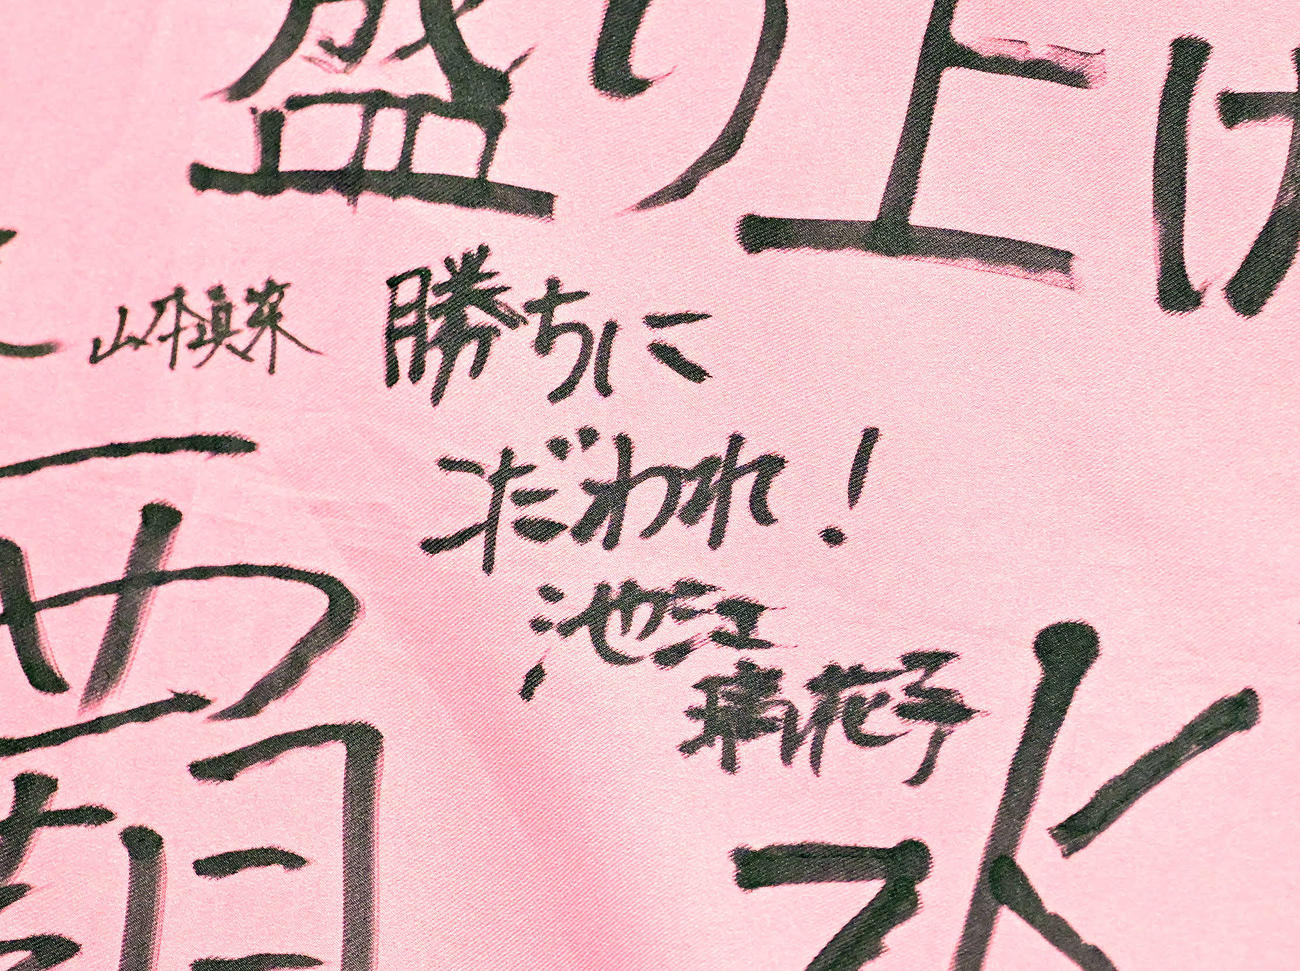 盛り上げ
山本真菜
勝ちに
こだわれ!
池江
璃花子
覇
水